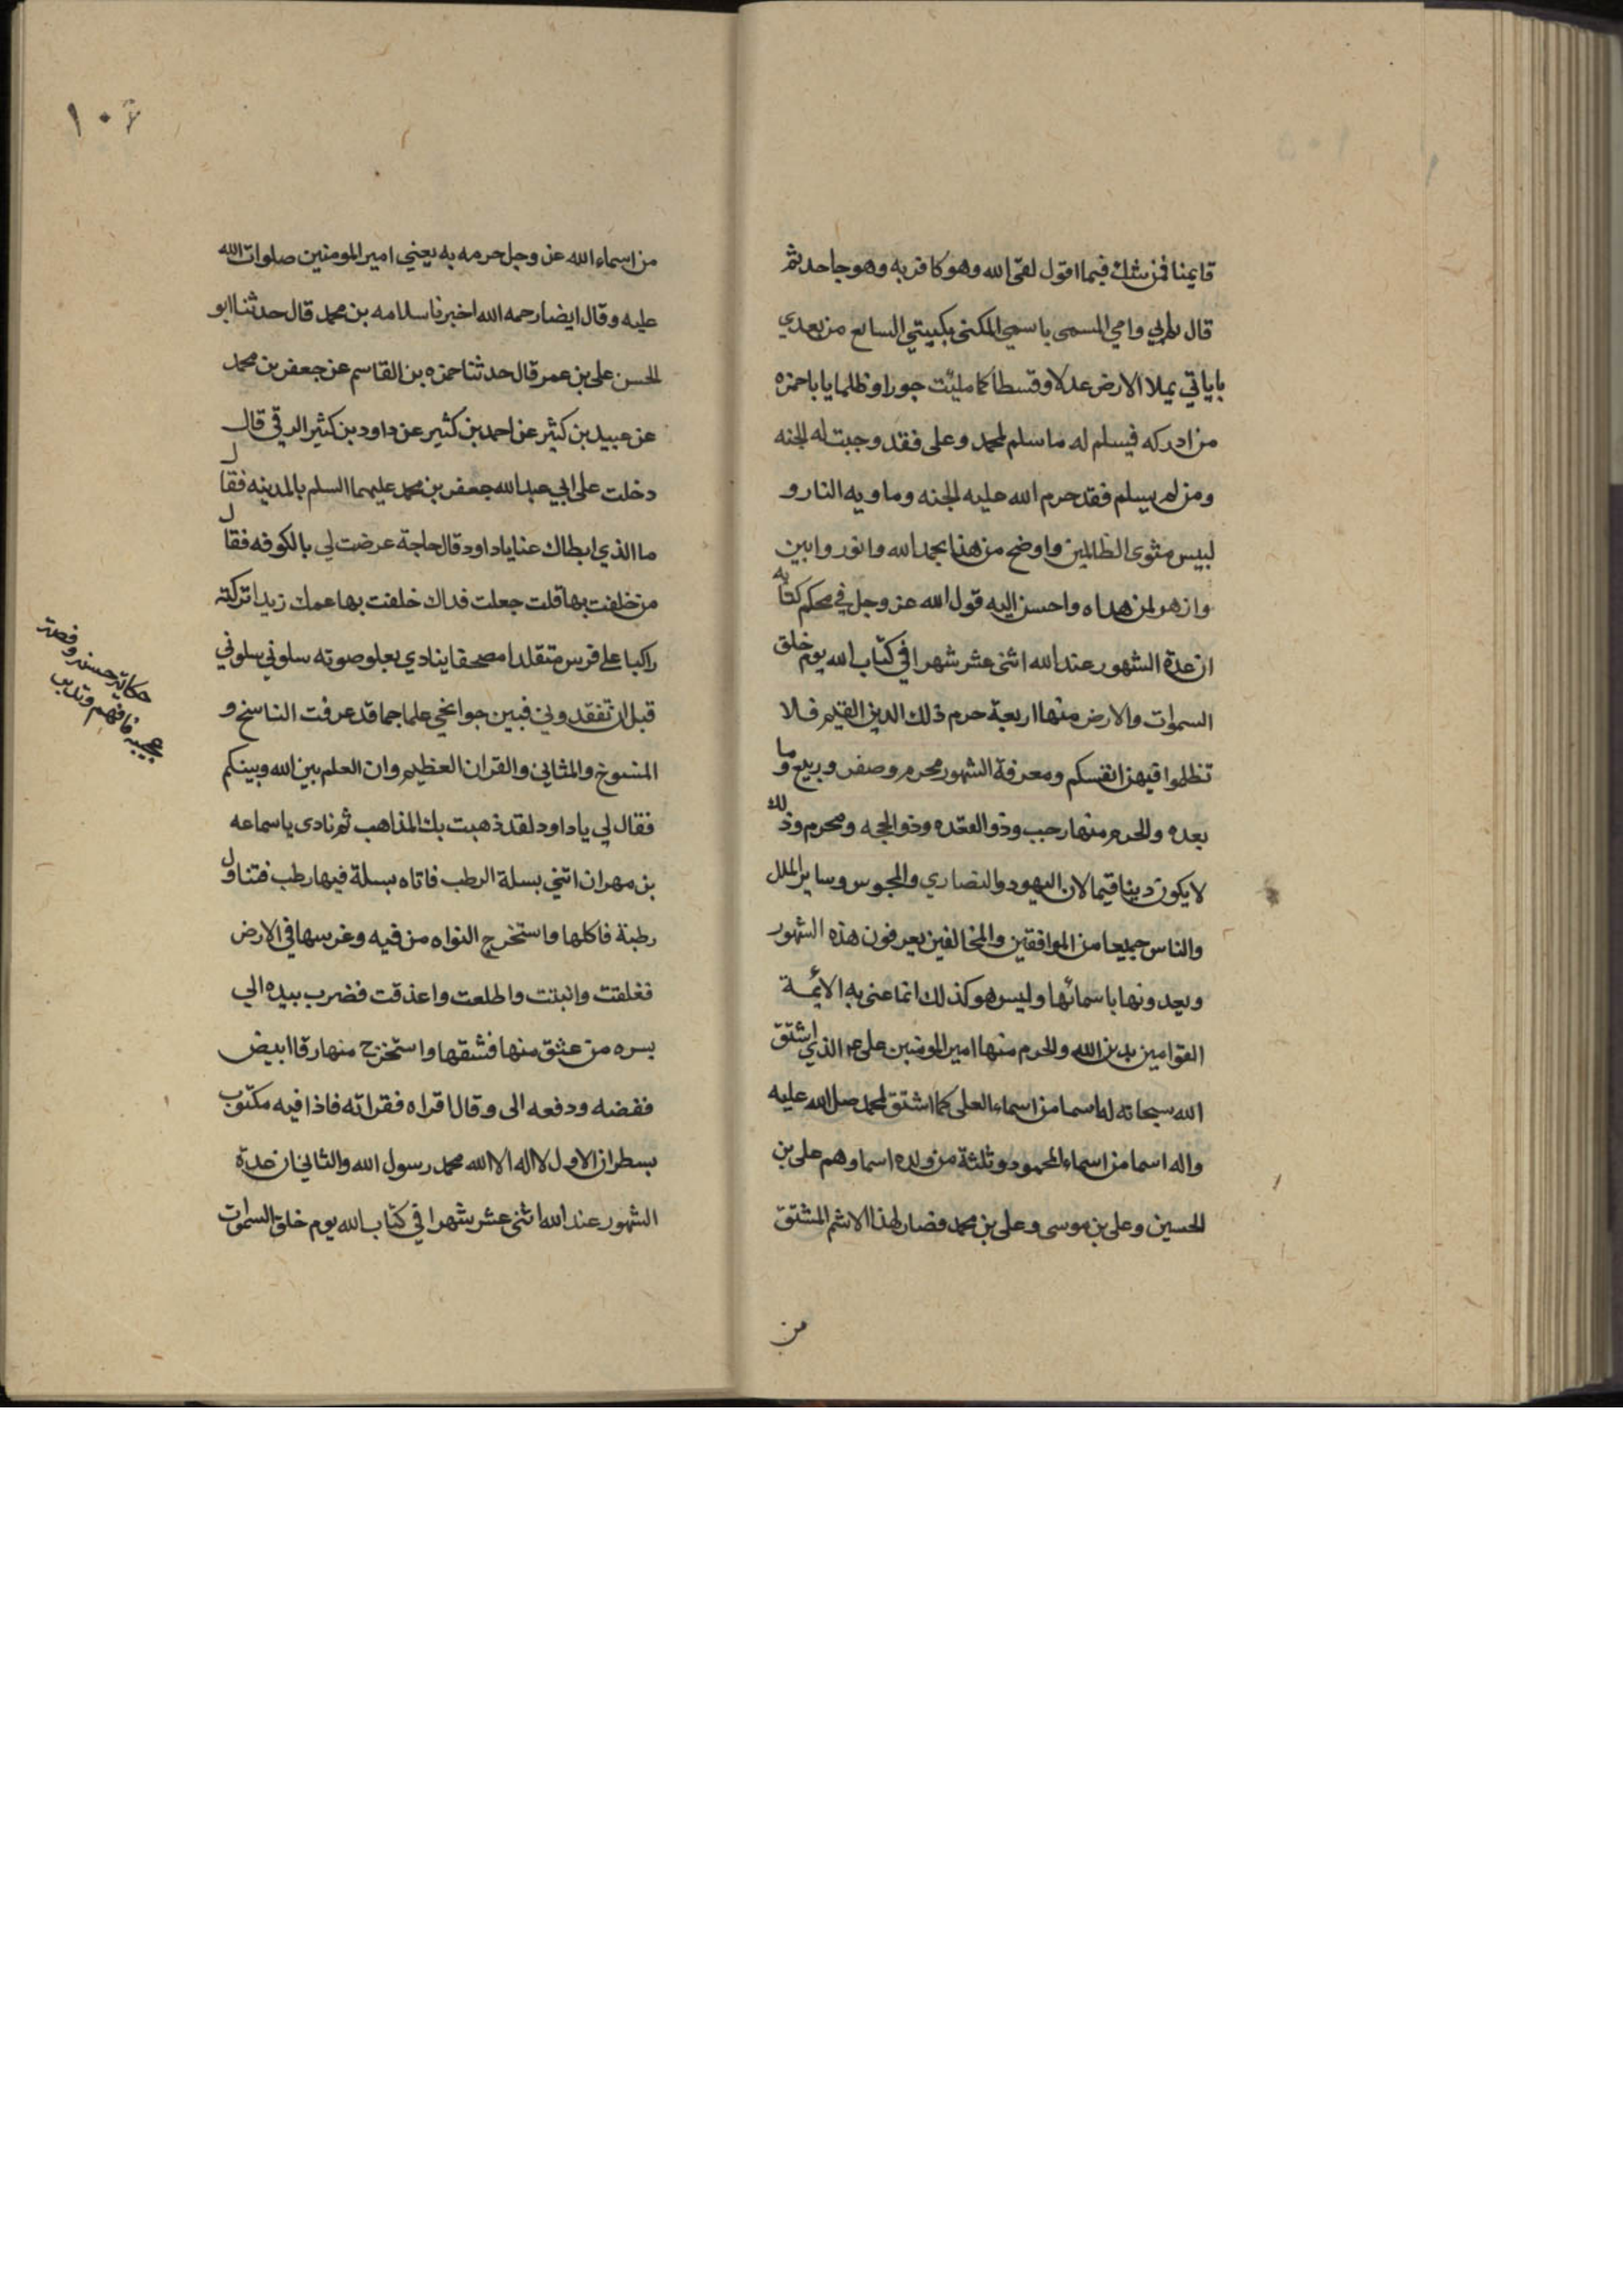 قايمنا فمن شك فيما اقول لقي الله وهو كافر به وهو جاحد ثم
قال بابي وامي المسمى باسمي المكنى بكنيتي السابع من بعدي
بابي ياتي يملا الارض عدلا وقسطا كما مليت جورا وظلما يا با حمزه
من ادركه فيسلم له ما سلم لمحمد وعلى فقد وجبت له الجنه
ومن لم يسلم فقد حرم الله عليه الجنه وماويه النار و
لبيس مثوى الظالمين واوضح من هذا بحمد الله وانور وابين
وازهر لمن هداه واحسن اليه قول الله عز وجل في محكم كتابه
ان عدة الشهور عند الله اثنى عشر شهرا في كتاب الله يوم خلق
السموات والارض منها اربعة حرم ذلك الدين القيم فلا
تظلموا فيهن انفسكم ومعرفة الشهور محرم وصفر وربيع وما
بعده والحرم منها رجب وذو القعده وذو الحجه ومحرم وذلك
لا يكون دينا قيما لان اليهود والنصاري والمجوس وساير الملل
والناس جميعا من الموافقين والمخالفين يعرفون هذه الشهور
ويعدونها باسمائها وليس هو كذلك انما عنى به الائمة
القوامين بدين الله والحرم منها امير المومنين على ع م الذي اشتق
الله سبحانه له اسما من اسماءه العلى كما اشتق لمحمد صلى الله عليه
واله اسما من اسماءه المحمود وثلثة من ولده اسماوهم على بن
الحسين وعلى بن موسى وعلى بن محمد فصار لهذا الاسم المشتق
من
١٠٦
من اسماء الله عز وجل حرمه به يعني امير المومنين صلوات الله
عليه وقال ايضا رحمه الله اخبرنا سلامه بن محمد قال حدثنا ابو
الحسن على بن عمر قال حدثنا حمزه بن القاسم عن جعفر بن محمد
عن عبيد بن كثير عن احمد بن كثير عن داود بن كثير الرقي قال
دخلت على ابي عبد الله جعفر بن محمد عليهما السلم بالمدينه فقال
ما الذي ابطاك عنا يا داود قال حاجة عرضت لي بالكوفه فقال
من خلفت بها قلت جعلت فداك خلفت بها عمك زيدا تركته
راكبا على فرس متقلدا مصحفا ينادي بعلو صوته سلوني سلوني
قبل ان تفقدوني فبين جوانحي علما جما قد عرفت الناسخ و
المنسوخ والمثاني والقران العظيم وان العلم بين الله وبينكم
فقال لي يا داود لقد ذهبت بك المذاهب ثم نادى يا سماعه
بن مهران اتني بسلة الرطب فاتاه بسلة فيها رطب فتناول
رطبة فاكلها واستخرج النواه من فيه وغرسها في الارض
ففلقت وانبتت واطلعت واعذقت فضرب بيده الي
بسره من عذق منها فشقها واستخرج منها رقا ابيض
ففضه ودفعه الى وقال اقراه فقراته فاذا فيه مكتوب
بسطران الاول لا اله الا الله محمد رسول الله والثاني ان عدة
الشهور عند الله اثنى عشر شهرا في كتاب الله يوم خلق السموات
حكاية حسنه وقصة
عجيبه فافهم وتدبر